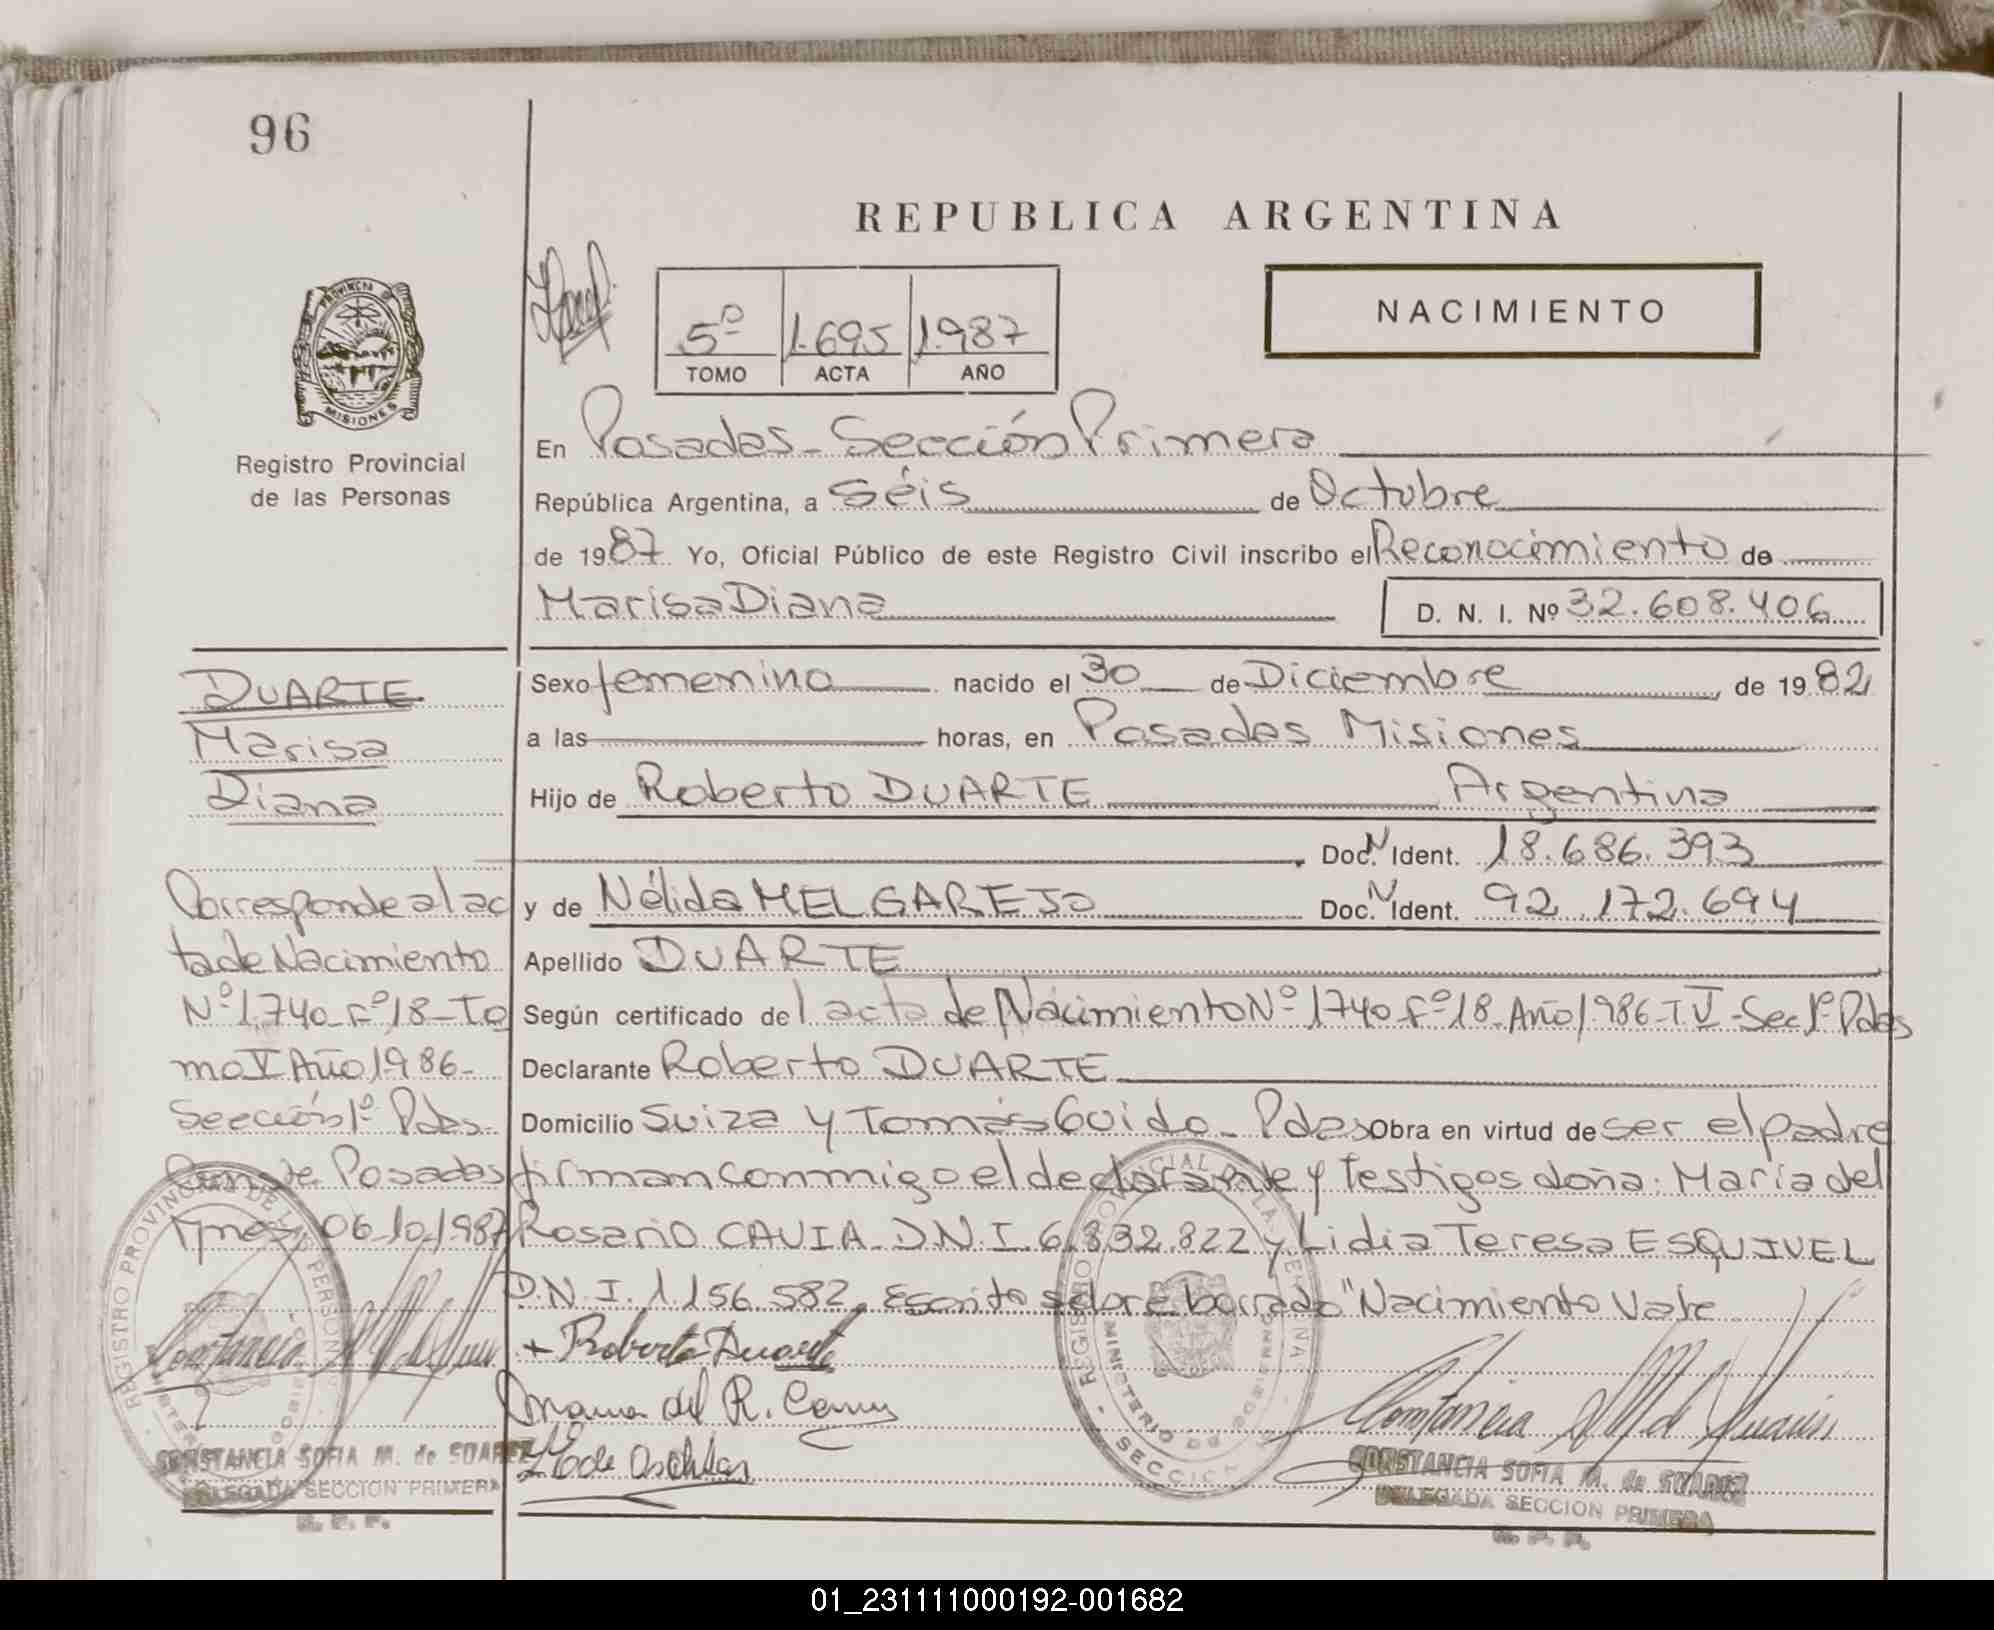 96
REPUBLICA ARGENTINA
5º 1.695 1.987
TOMO ACTA AÑO
NACIMIENTO
PROVINCIA DE
MISIONES
Registro Provincial
de las Personas
En Posadas - Sección Primera
República Argentina, a Séis de Octubre
de 1987 Yo, Oficial Público de este Registro Civil inscribo el Reconocimiento de
Marisa Diana D. N. I. Nº 32.608.406
DUARTE
Marisa
Diana
Sexo femenino nacido el 30 de Diciembre, de 1982
a las horas, en Posadas Misiones
Hijo de Roberto DUARTE Argentina
Doc. N Ident. 18.686.393
y de Nélida MELGAREJO Doc. N Ident. 92.172.694
Apellido DUARTE
Según certificado del acta de Nacimiento Nº 1740 Fº 18 - Año 1986 - T V - Sec 1º Pdas
Declarante Roberto DUARTE
Domicilio Suiza y Tomás Guido - Pdas Obra en virtud de ser el padre
firman conmigo el declarante y Testigos doña: María del
Rosario CAVIA D.N.I. 6.832.822 y Lidia Teresa ESQUIVEL
D.N.I. 1.156.582. Escrito sobre borrado "Nacimiento Vale
Corresponde al ac
ta de Nacimiento
Nº 1740 - Fº 18 - To
mo V Año 1986 -
Sección 1º Pdas -
Posadas
Mnes, 06-10-1987
+ Roberto Duarte
CONSTANCIA SOFIA M. de SUAREZ
DELEGADA SECCION PRIMERA
R. P. P.
CONSTANCIA SOFIA M. de SUAREZ
DELEGADA SECCION PRIMERA
R. P. P.
01_231111000192-001682